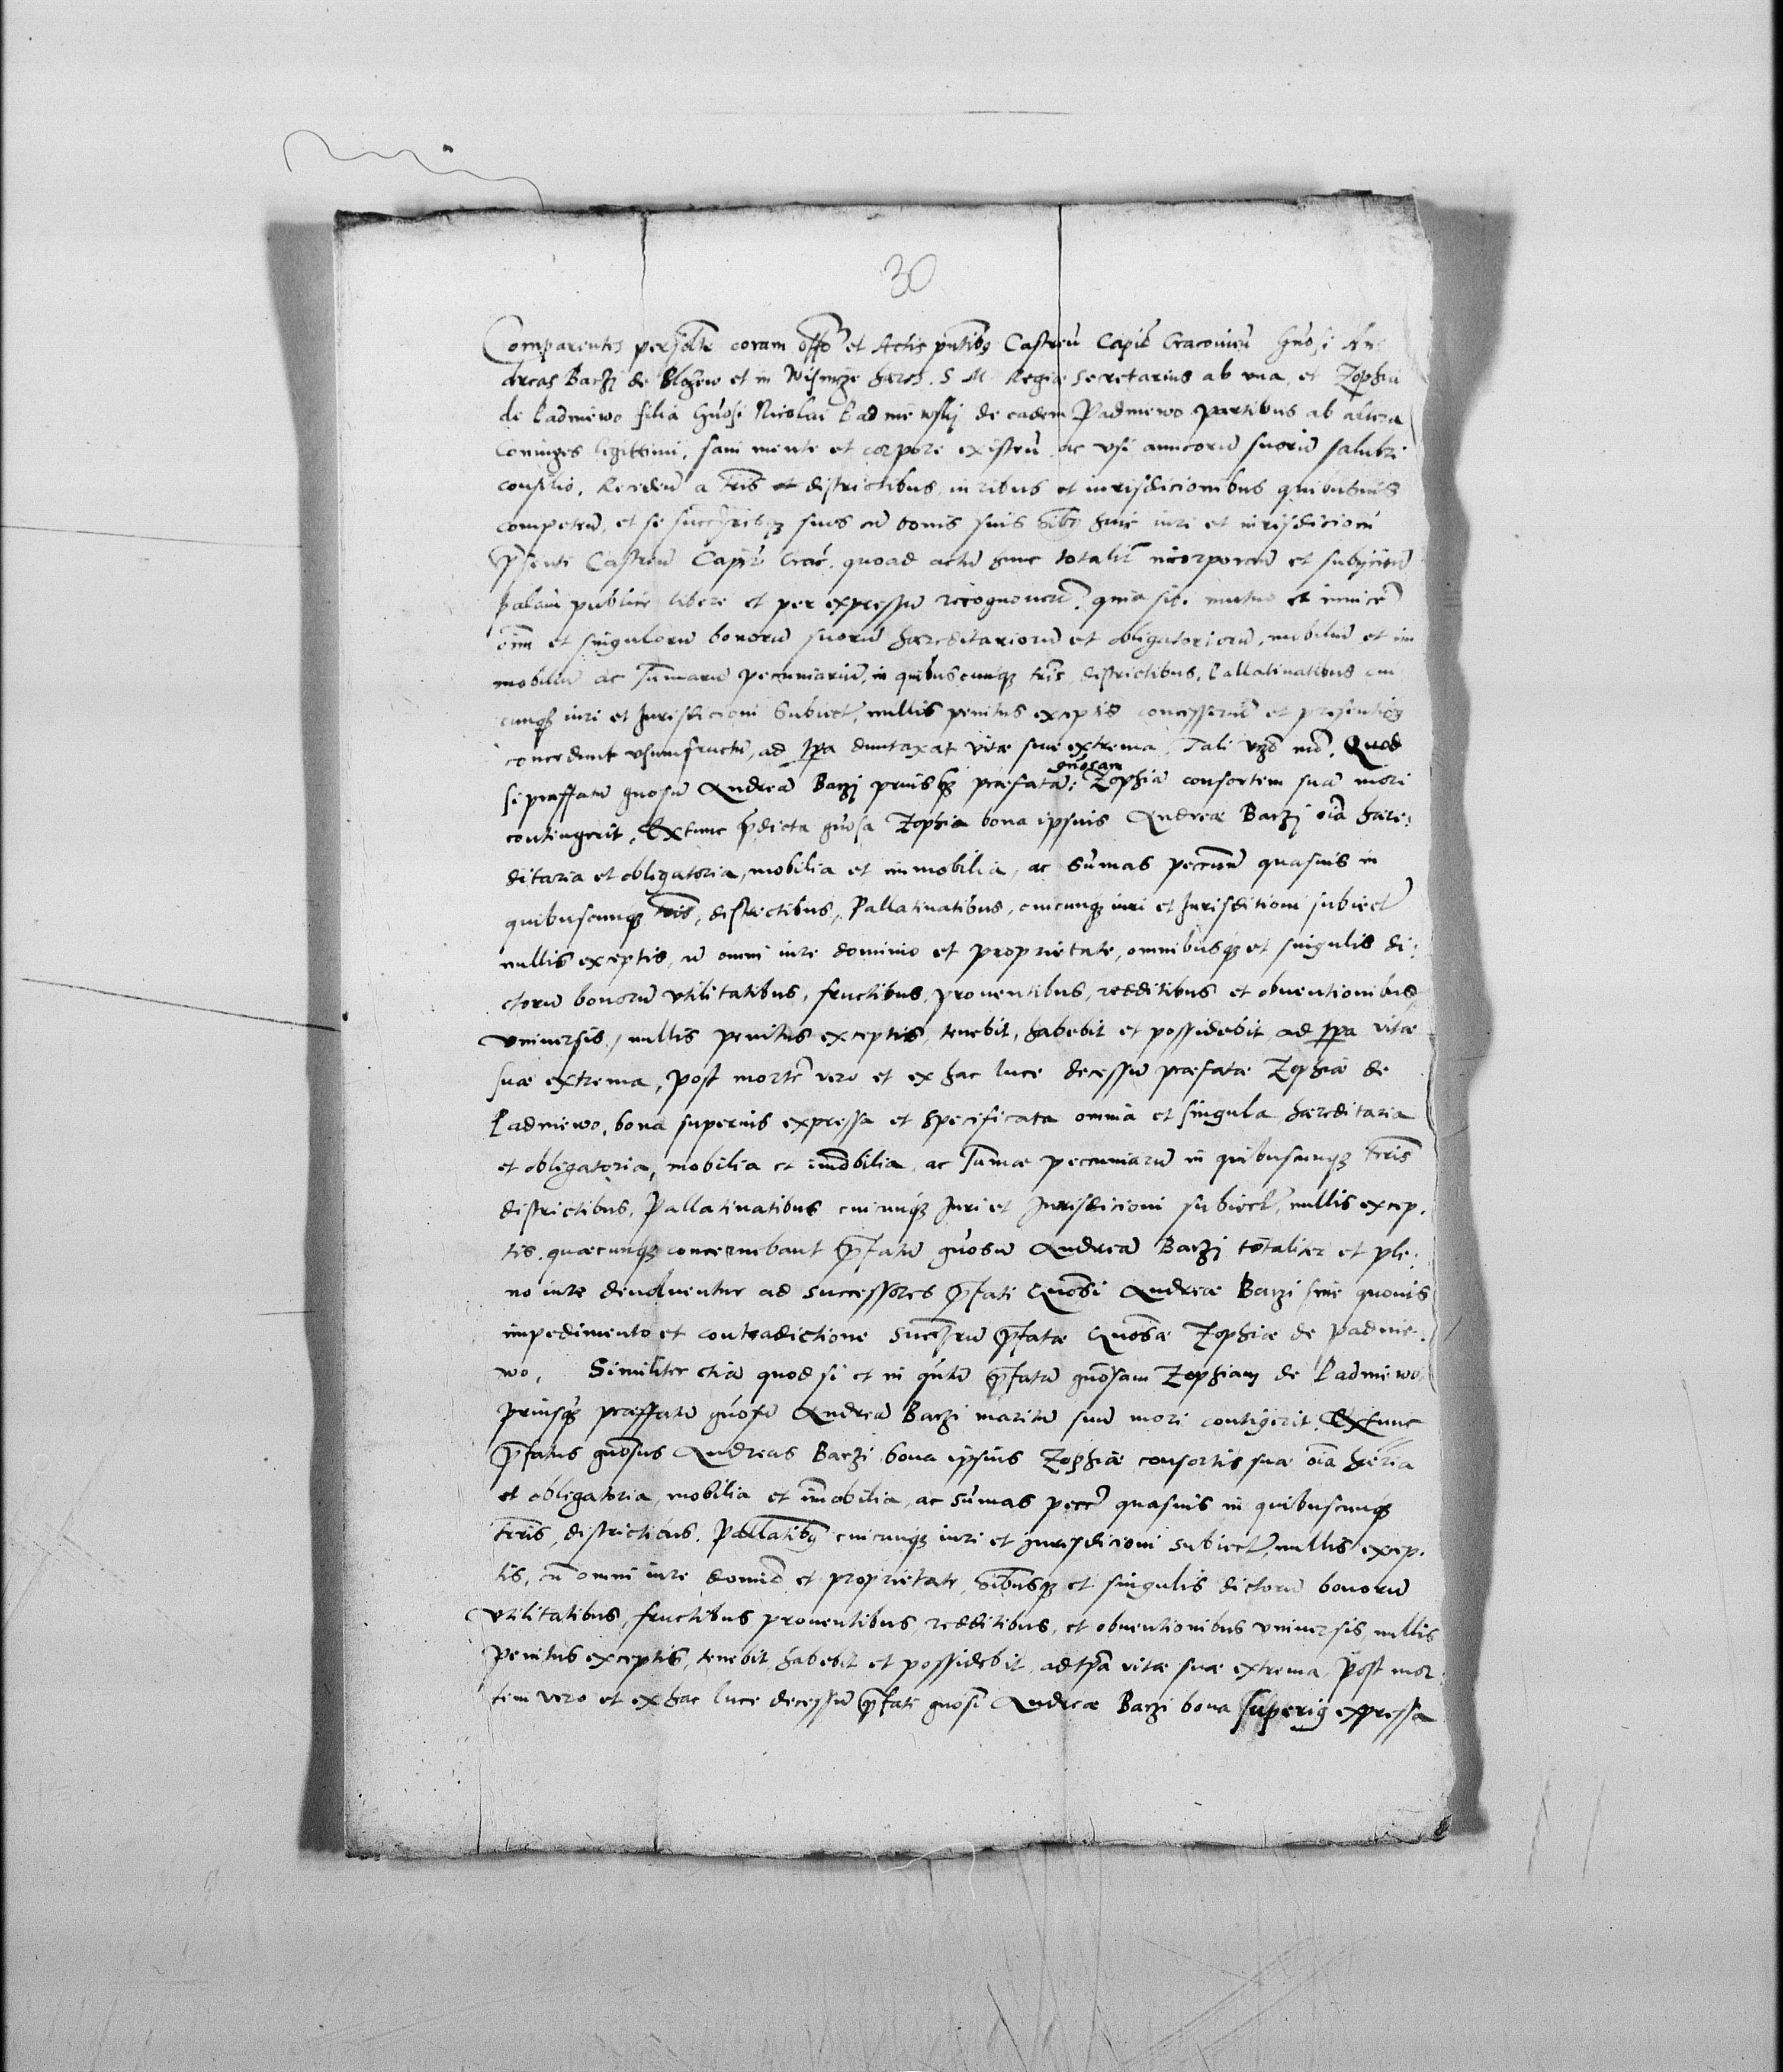 30
Comparentes persolr coram offo et Actis pntibq Castreñ Capit Cracovien Gnosi An
dreas Barzj de Blozew et in Wisnicze hæres. S M Regiæ Secretarius ab una, et Zophia
de Padniewo filia Gnosi Nicolai Padniewskj de eadem Padniewo partibus ab altera
Coniuges legittimi, sani mente et corpore existeñ ac usi amicorũ suorũ salubri
consilio, Recedeñ a tris districtibus, iuribus et iurisdicionibus quibusvis
competeñ, et se successoresqz suos cũ bonis suis oibq huic iuri et iurisdicioni
psenti Castreñ Capit Crac. quoad actũ hunc totalitr incorporañ et subijcieñ
Palam publice libere et per expressũ recognoverũt quia sibi mutuo et invicẽ
oim et singulorũ bonorũ suorũ hæreditariorũ et obligatoriorũ, mobiliũ et im
mobiliũ ac sumarũ pecuniariũ, in quibuscunqz tris, districtibus, Pallatinatibus cui
cunqz iuri et Jurisdicioni Subiect, nullis penitus exceptis concesserũt et presentibq
concedunt usumfructũ, ad tpa duntaxat vitæ suæ extrema, Tali vzo mo. Quod
gnosam
si præffatũ gnosũ Andreã Barzj priusqz præfatã: Zophiã consortem suã mori
contingerit, Extunc pdicta gnosa Zophia bona ipsius Andreæ Barzj oia hære:
ditaria et obligatoria, mobilia et immobilia, ac Sumas peccun quasuis in
quibuscunqz tris, districtibus, Pallatinatibus, cuicunqz iuri et Jurisditioni subiect
nullis exceptis, cũ omni iure dominio et proprietate, omnibusqz et singulis di:
ctorũ bonorũ utilitatibus, fructibus, proventibus, redditibus et obventionibus
universis, nullis penitus exceptis, tenebit, habebit et possidebit ad tpa vitæ
suæ extrema, post mortẽ vero et ex hac luce decessũ præfatæ Zophiæ de
Padniewo, bona superius expressa et Specificata omnia et singula hæreditaria
et obligatoria, mobilia et imobilia, ac Sumæ peccuniarũ in quibuscunqz terris
districtibus, Pallatinatibus cuicunqz Juri et Jurisdicioni subiect, nullis excep.
tis quæcunqz concernebant pfatũ gnosũ Andreã Barzj totaliter et ple:
no iure devolventur ad successores pfati Gnosi Andreæ Barzi sine quovis
impedimento et contradictione succrũ pfatæ Gnosæ Zophiæ de Padnie:
wo, Similiter etiã quod si et in qntũ pfatã gnosam Zophiam de Padniewo,
priusqz præffatũ gnosũ Andreã Barzi maritũ suũ mori contigerit. Extunc
pfatus gnosus Andreas Barzi bona ipsius Zophiæ consortis suæ oia hæria
et obligatoria, mobilia et imobilia, ac Sumas pecc quasuis in quibuscunqz
terris, districtibus, Pallatibq cuicunqz iuri et Jurisdicioni Subiect, nullis excep.
tis, cũ omni iure domio et proprietate, oibusqz et singulis dictorũ bonorũ
utilitatibus, fructibus proventibus, redditibus, et obventionibus universis, nullis
penitus exceptis, tenebit, habebit et possidebit, ad tpa vitæ suæ extrema, post mor
tem vero et ex hac luce decessũ pfati gnosi Andreæ Barzi bona superiq expressa